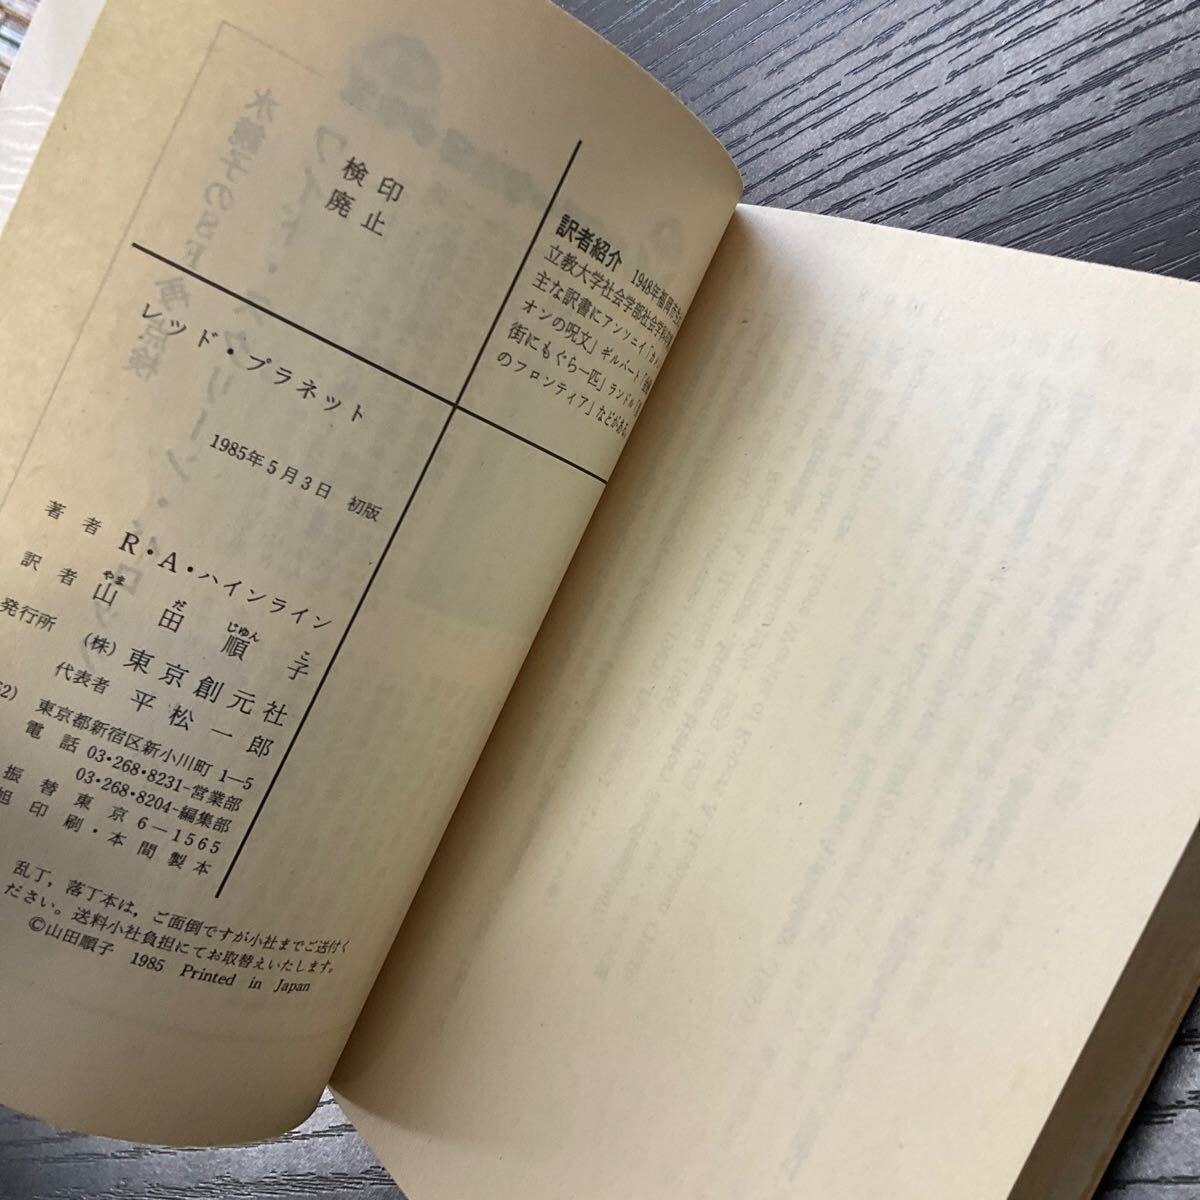 検印
廃止
訳者紹介 1948年福岡市
立教大学社会学部社会学科
主な訳書にアンソニイ「カメレ
オンの呪文」ギルバート
街にもぐら一匹」ランドル
のフロンティア」などがある。
レッド・プラネット
1985年5月3日 初版
著者 R・A・ハインライン
訳者 山田順子
やま だ じゅん こ
発行所 (株)東京創元社
代表者 平松一郎
62) 東京都新宿区新小川町 1-5
電話 03・268・8231-営業部
03・268・8204-編集部
振替東京 6-1565
旭印刷・本間製本
乱丁,落丁本は,ご面倒ですが小社までご送付く
ださい。送料小社負担にてお取替えいたします。
©山田順子 1985 Printed in Japan